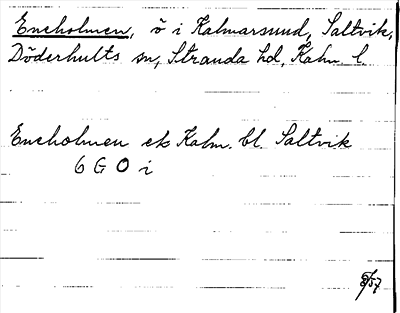 Eneholmen, ö i Kalmarsund, Saltvik,
Döderhults sn, Stranda hd, Kalm. l.
Eneholmen ek Kalm. bl. Saltvik
6 G O i